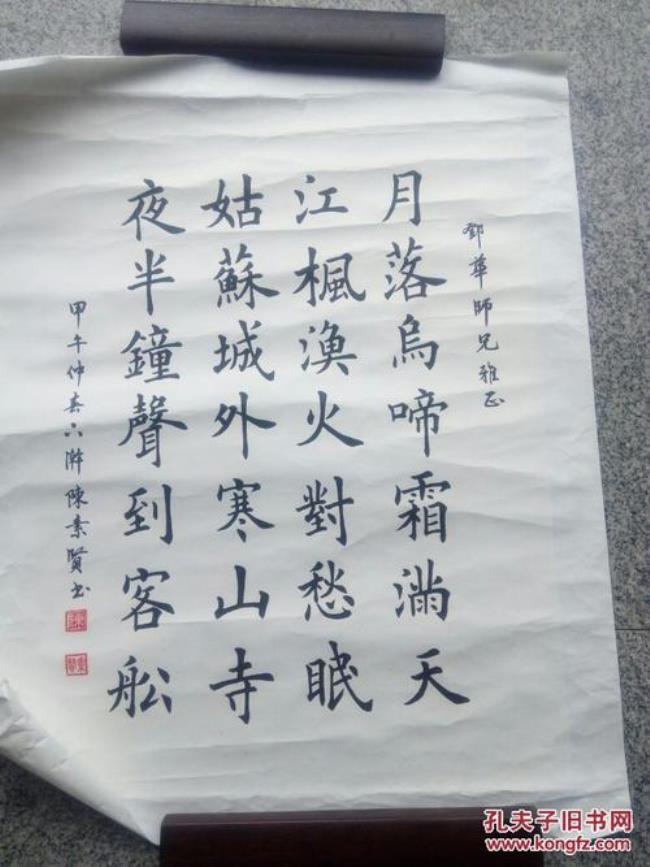 鄧華師兄雅正
月落烏啼霜滿天
江楓漁火對愁眠
姑蘇城外寒山寺
夜半鐘聲到客船
甲午仲春六澣陳素賢書
孔夫子旧书网
www.kongfz.com